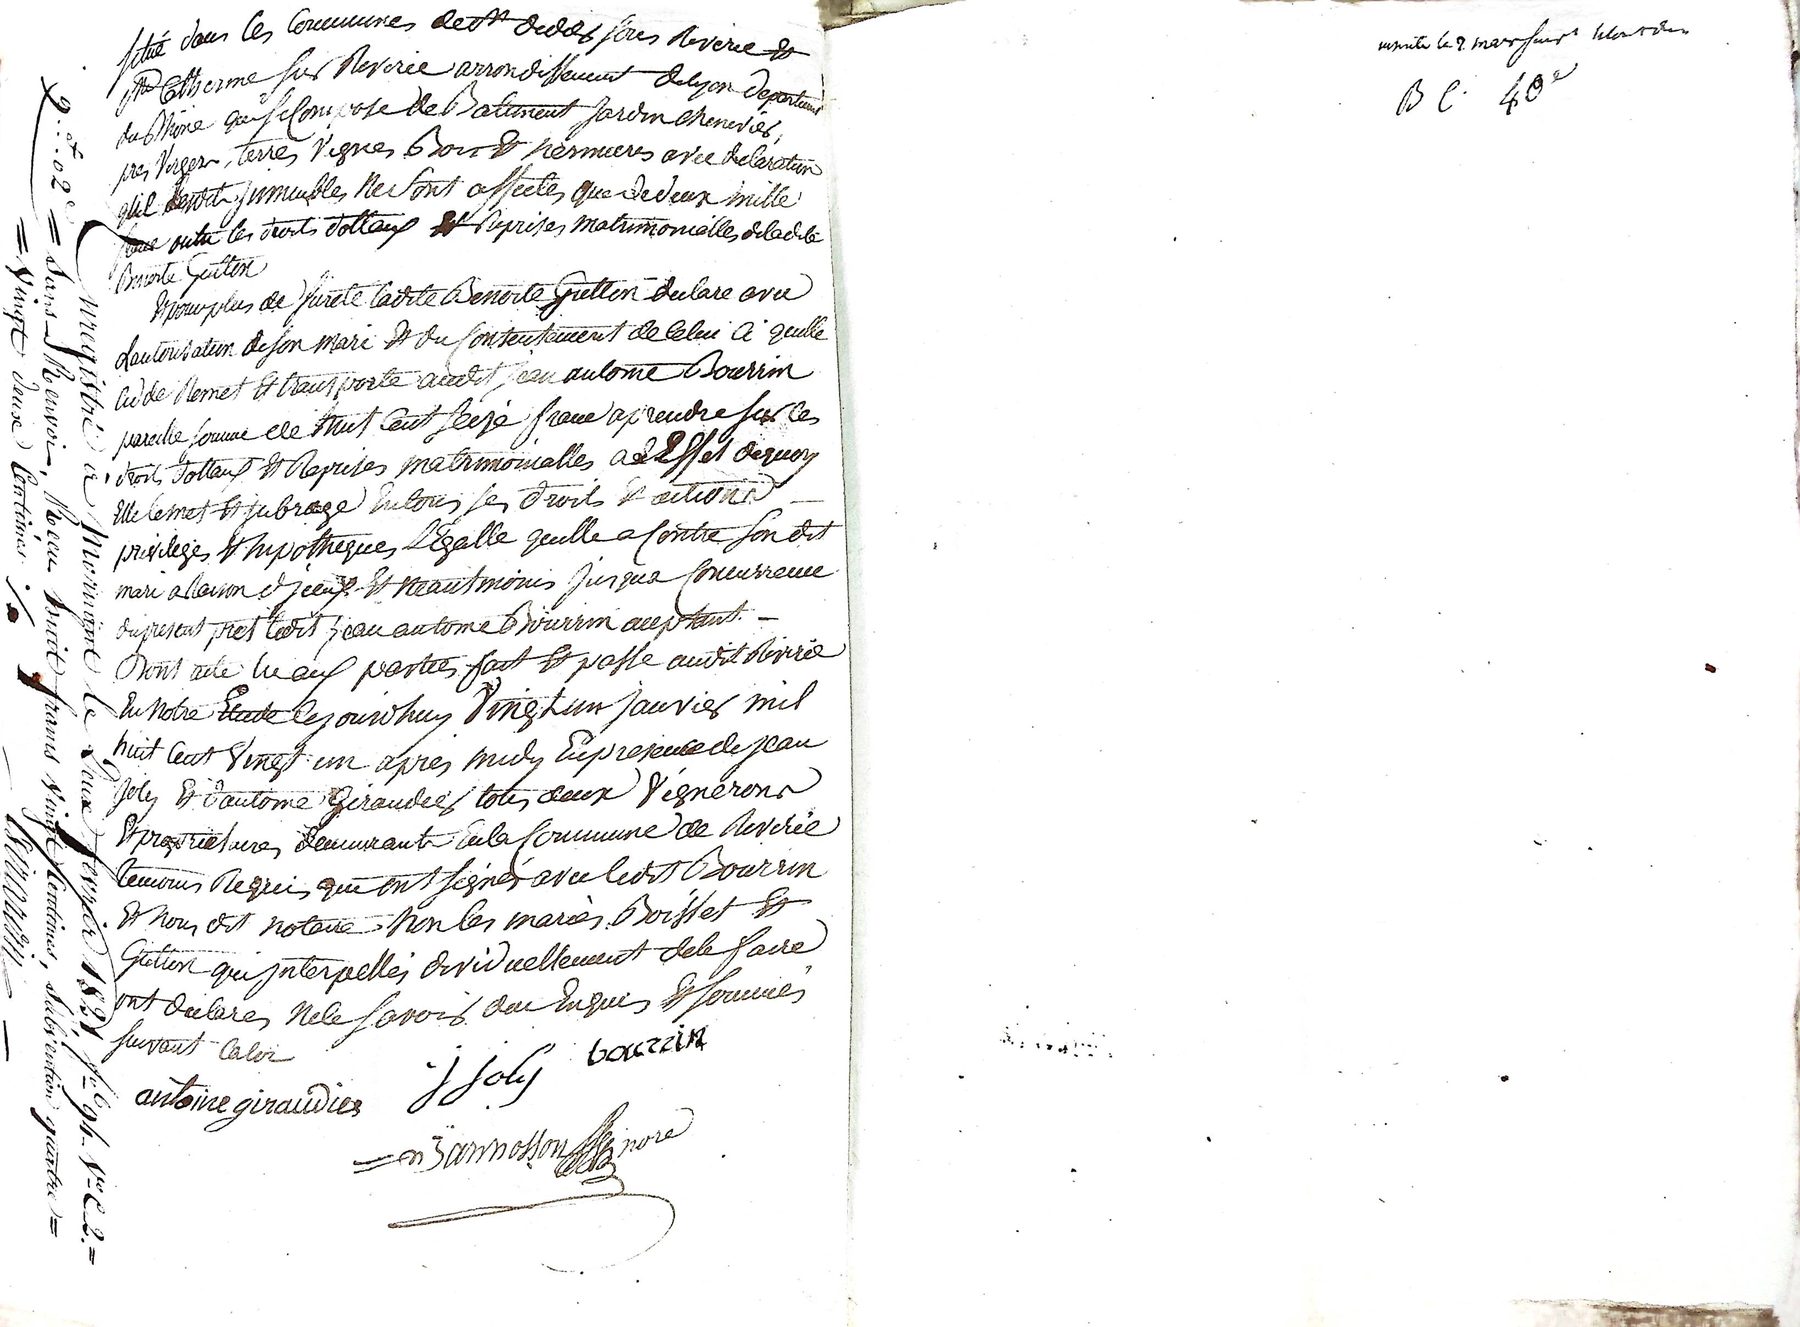 situé dans les Communes de St didier sous Riverie Et
Ste Catherine sur Riverie arrondissement de lyon departement
du Rhône qui se Compose de Batiment Jardin chenevier,
pres Verger, terres Vignes Bois Et hermieres avec declaration
qu'il desdits jmmeubles Ne sont affectés que de deux mille
franc outre les droits dottaux Et Reprises matrimonialles de ladite
Benoite Gutton
Et pour plus de sureté ladite Benoite Gutton declare avec
Lautorisation de son mari Et du Consentement de Celui Ci quelle
Cède Remet Et transporte audit jean antoine Bourrin
pareille somme de huit Cent seize franc a prendre sur les
droits dottaux Et Reprises matrimonialles a L'Effet de quoy
Elle le met Et subroge En tous ses droits Et actions
privileges Et hipotheques LEgalle quelle a Contre son dit
mari a Raison d'jceux Et neantmoins jusqua Concurrence
du present prêt ledit jean antoine Bourrin acceptant.
Dont acte lu aux parties fait Et passé audit Riverie
En Notre Etude Cejourdhuy Vingt un janvier mil
huit Cent Vingt un après midy En presence de jean
joly Et d'antoine Giraudier tous deux Vignerons
Et proprietaires demeurants En la Commune de Riverie
temoins Requis qui ont signés avec ledit Bourrin
Et Nous dit notaire Non les mariés Boisset Et
Gutton qui jnterpellés dividuellement de le faire
ont declarés Ne le savoir de ce Enquis Et sommés
suivant la loi
bourrin
j joly
antoine giraudier
Jannosson nore
Enregistré à Mornant le Deux fevrier 1821, fo 94. Vo C. 2. =
9. 02 = Sans Renvoi, Recu huit francs vingt Centimes, Subvention quatre =
= Vingt Deux Centimes ./.
B C. 48e